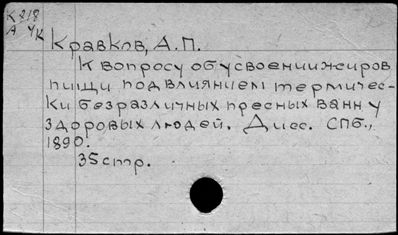 К 818
А УК
Кравков, А.П.
К вопросу об усвоении жиров
пищи под влиянием термичес-
ки безразличных пресных ванн у
здоровых людей. Дисс. СПб.,
1890.
35 стр.